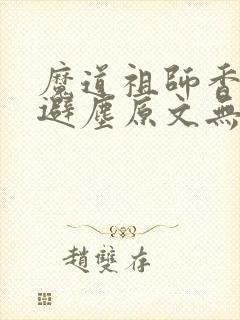 魔道祖師香
避塵原文無
趙雙存